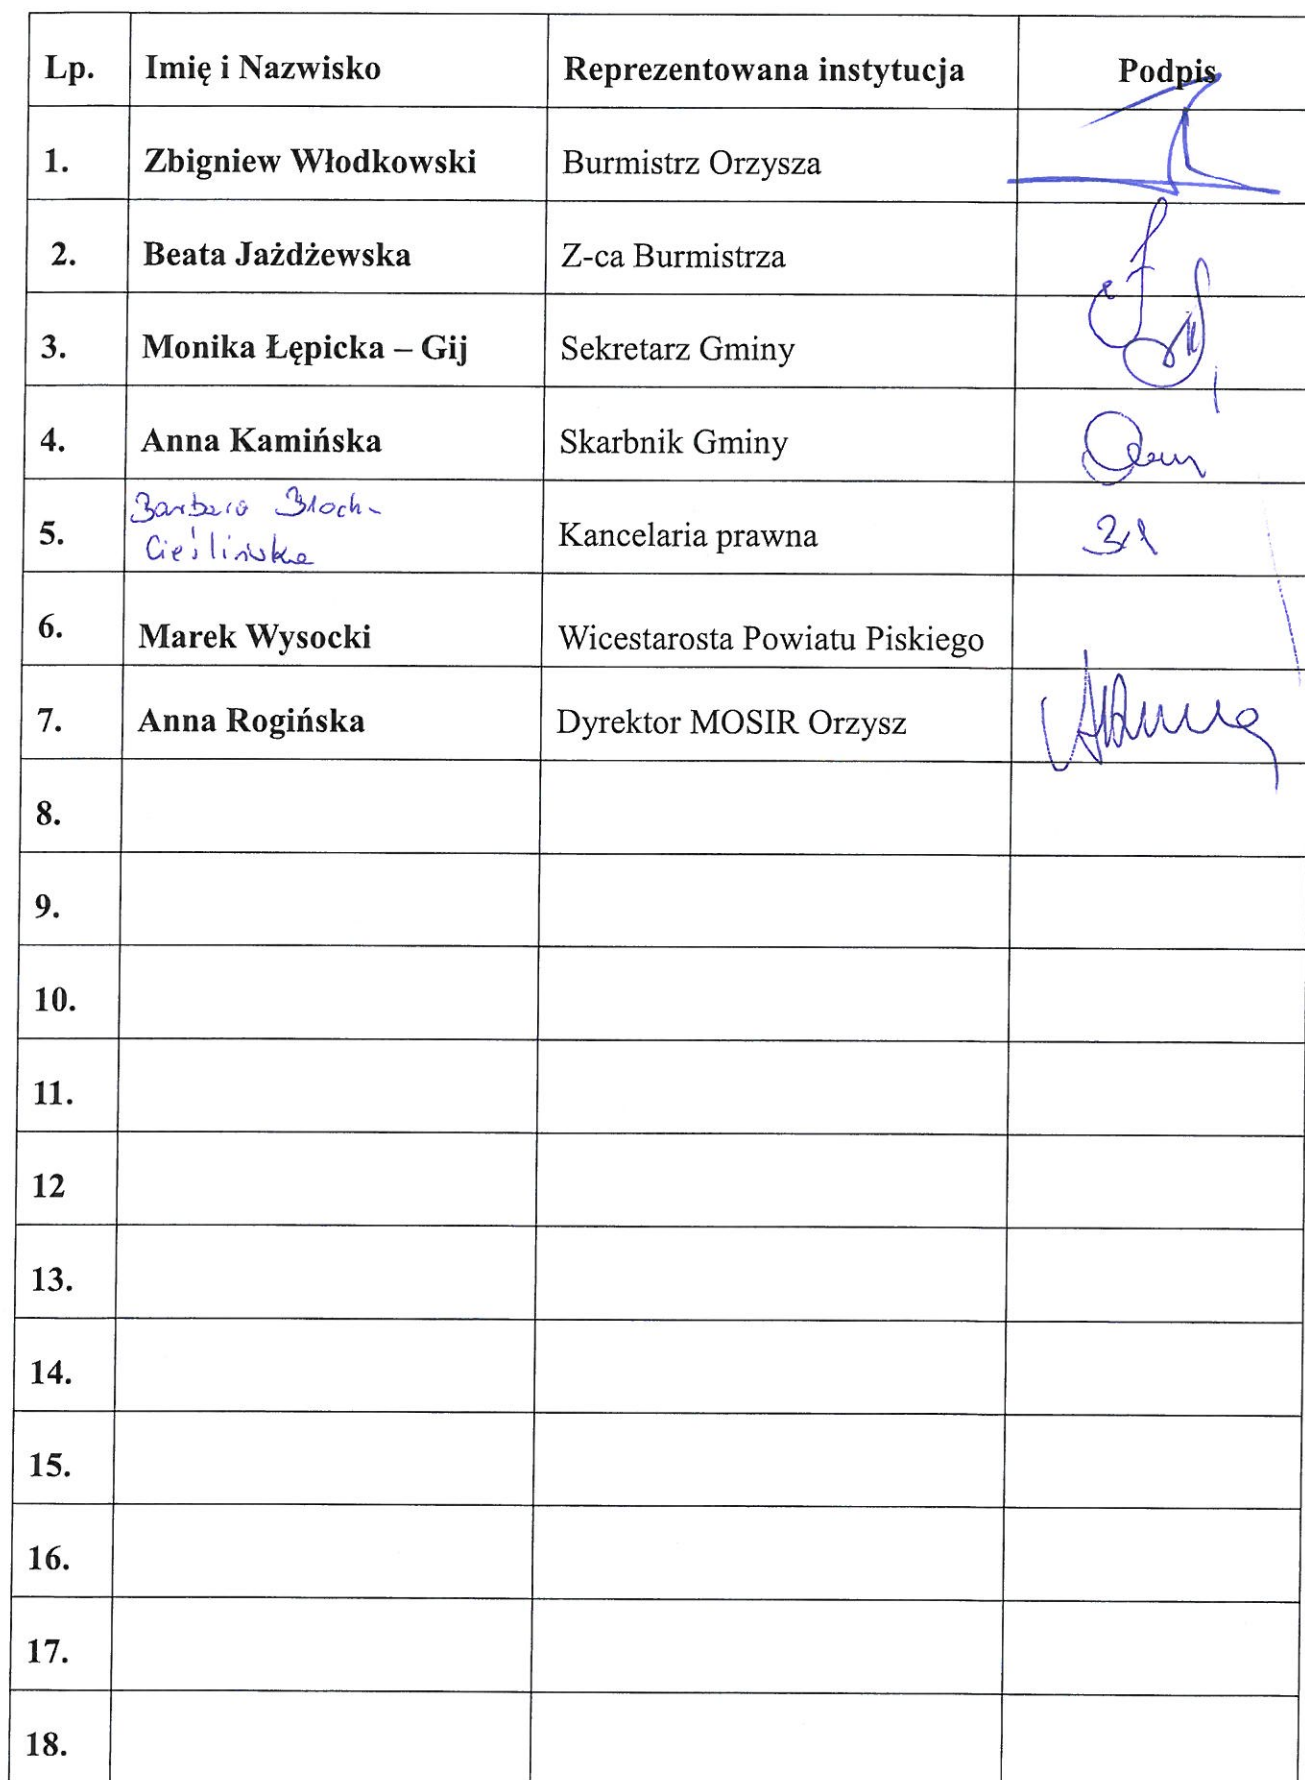 Lp. Imię i Nazwisko Reprezentowana instytucja Podpis
1. Zbigniew Włodkowski Burmistrz Orzysza
2. Beata Jażdżewska Z-ca Burmistrza
3. Monika Łępicka – Gij Sekretarz Gminy
4. Anna Kamińska Skarbnik Gminy
Barbara Bloch-
5. Cieślińska Kancelaria prawna
6. Marek Wysocki Wicestarosta Powiatu Piskiego
7. Anna Rogińska Dyrektor MOSIR Orzysz
8.
9.
10.
11.
12
13.
14.
15.
16.
17.
18.